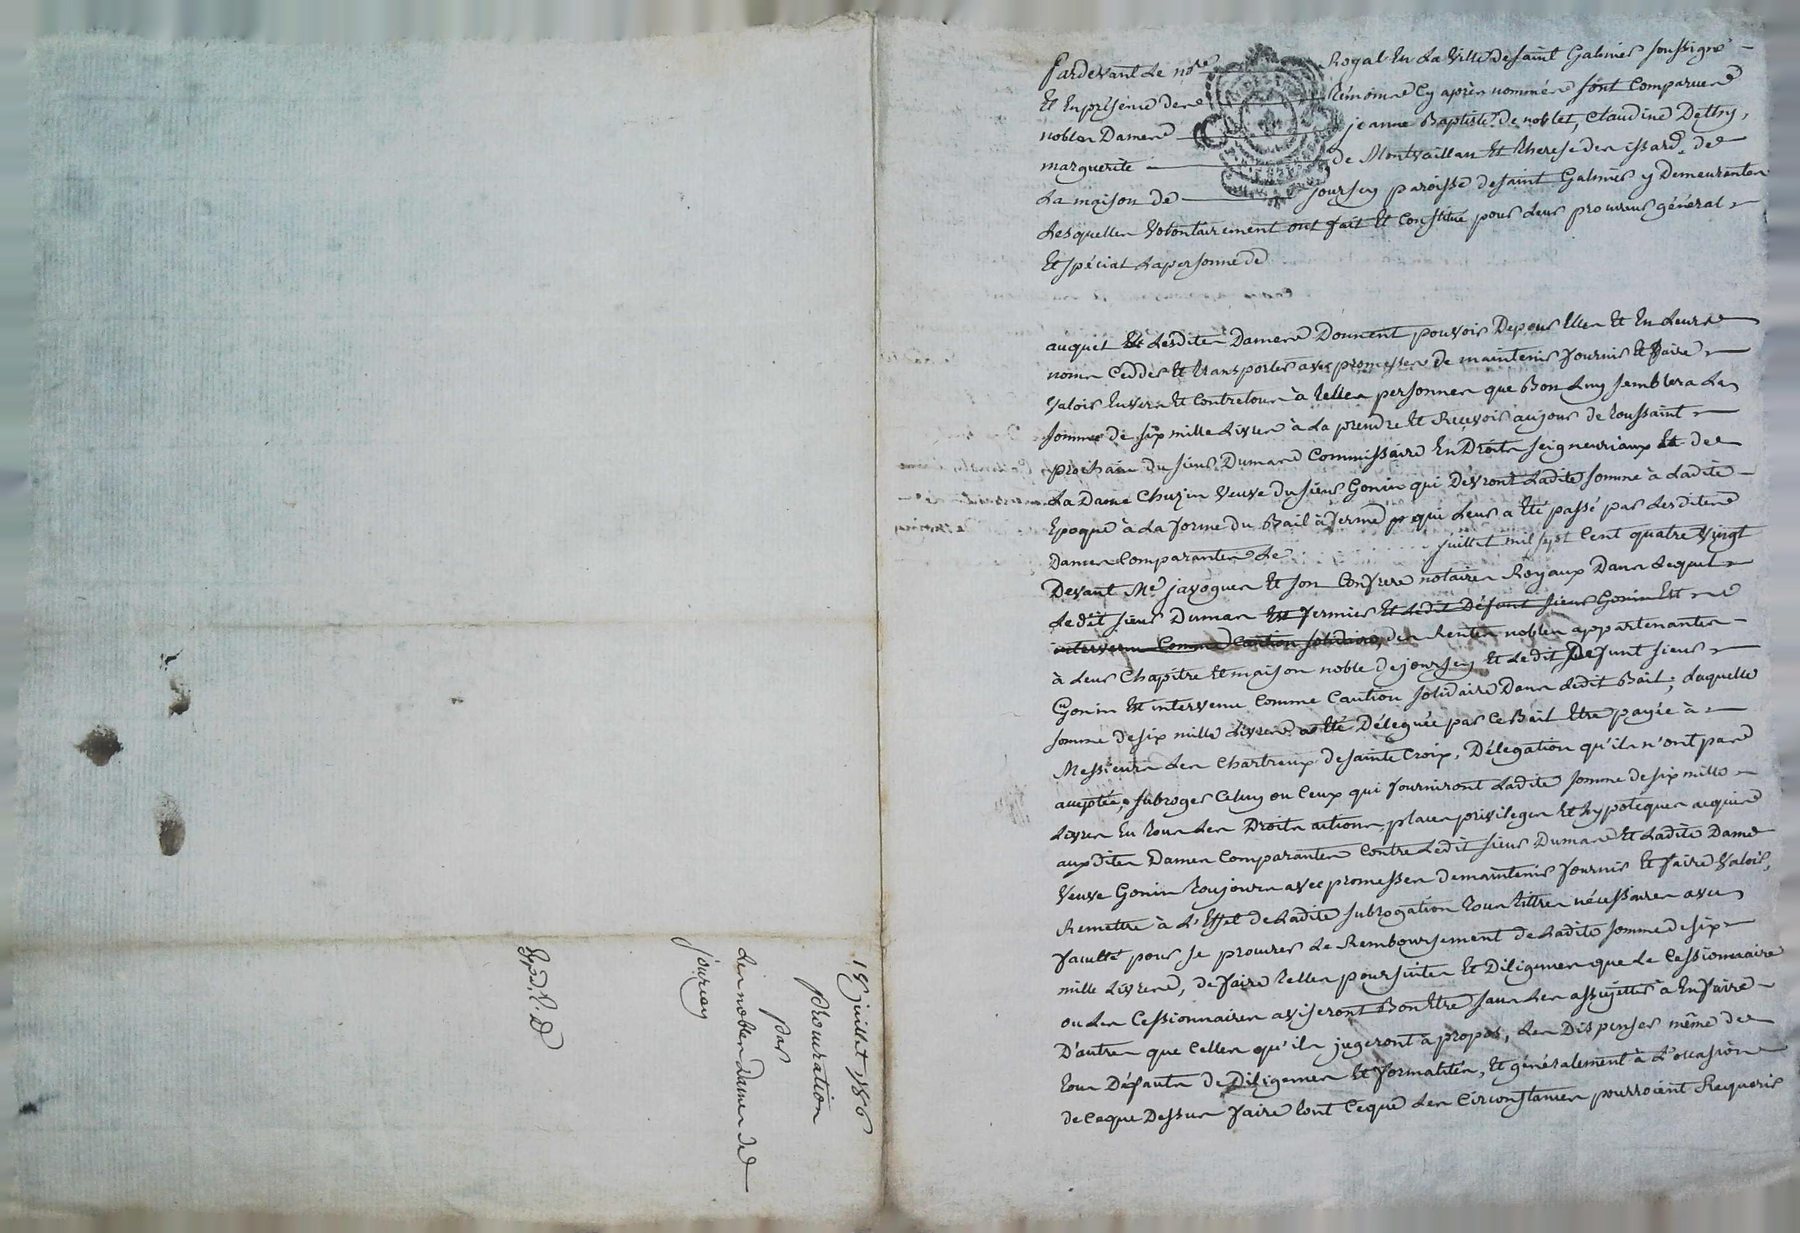 Pardevant Le nore Royal En La Ville de saint Galmier soussigné
Et En présence des Témoins Cy après nommés sont Comparues
nobles Dames jeanne Baptiste de noblet, Claudine Dethy,
marguerite de Montvaillan Et Therese des issards, de
La maison de joursey paroisse de saint Galmier y Demeurantes
Lesquelles Volontairement ont fait Et Constitué pour Leur procureur général
Et spécial La personne de
auquel Lesdites Dames Donnent pouvoir De pour Elles Et En Leurs
noms Cedder Et transporter avec promesses de maintenir fournir Et faire
Valoir Envers Et Contre tous à telles personnes que Bon Luy semblera La
somme de six mille Livres à La prendre Et Recevoir au jour de toussaint
prochain du sieur Dumas Commissaire En Droits seigneuriaux Et de
La Dame Chuzin Veuve du sieur Gonin qui Devront Ladite somme à Ladite
Epoque à La forme du Bail à ferme qui Leur a Eté passé par Lesdites
Dames Comparantes Le juillet mil sept Cent quatre Vingt
Devant Me javogues Et son Confrere notaires Royaux Dans Lequel
Ledit sieur Dumas Est fermier Et Ledit Défunt sieur Gonin Est
intervenu Comme Caution solidaire, des Rentes nobles appartenantes
à Leur Chapitre Et maison noble de joursey Et Ledit Defunt sieur
Gonin Est intervenu Comme Caution solidaire Dans Ledit Bail; Laquelle
somme de six mille Livres a Eté Déleguée par Ce Bail Etre payée à
Messieurs Les Chartreux de sainte Croix, Délegation qu'ils n'ont pas
acceptée; subroger Celuy ou Ceux qui fourniront Ladite somme de six mille
Livres En tous Les Droits actions, places privileges Et hypoteques acquis
auxdites Dames Comparantes Contre Ledit sieur Dumas Et Ladite Dame
Veuve Gonin toujours avec promesses de maintenir fournir Et faire Valoir,
Remettre à L'Effet de Ladite subrogation tous titres nécessaires avec
faculté pour se procurer Le Remboursement de Ladite somme de six
mille Livres, de faire telles poursuites Et Diligences que Le Cessionnaire
ou Les Cessionnaires aviseront Bon Etre sans Les assujettir à En faire
D'autres que Celles qu'ils jugeront à propos, Les Dispenser même de
tous Défauts de Diligences Et formalités, Et généralement à L'occasion
de Ce que Dessus faire tout Ce que Les Circonstances pourroient Requerir
19 juillet 1786
Procuration
Par
Les nobles dames de
joursey
Expd. V. D